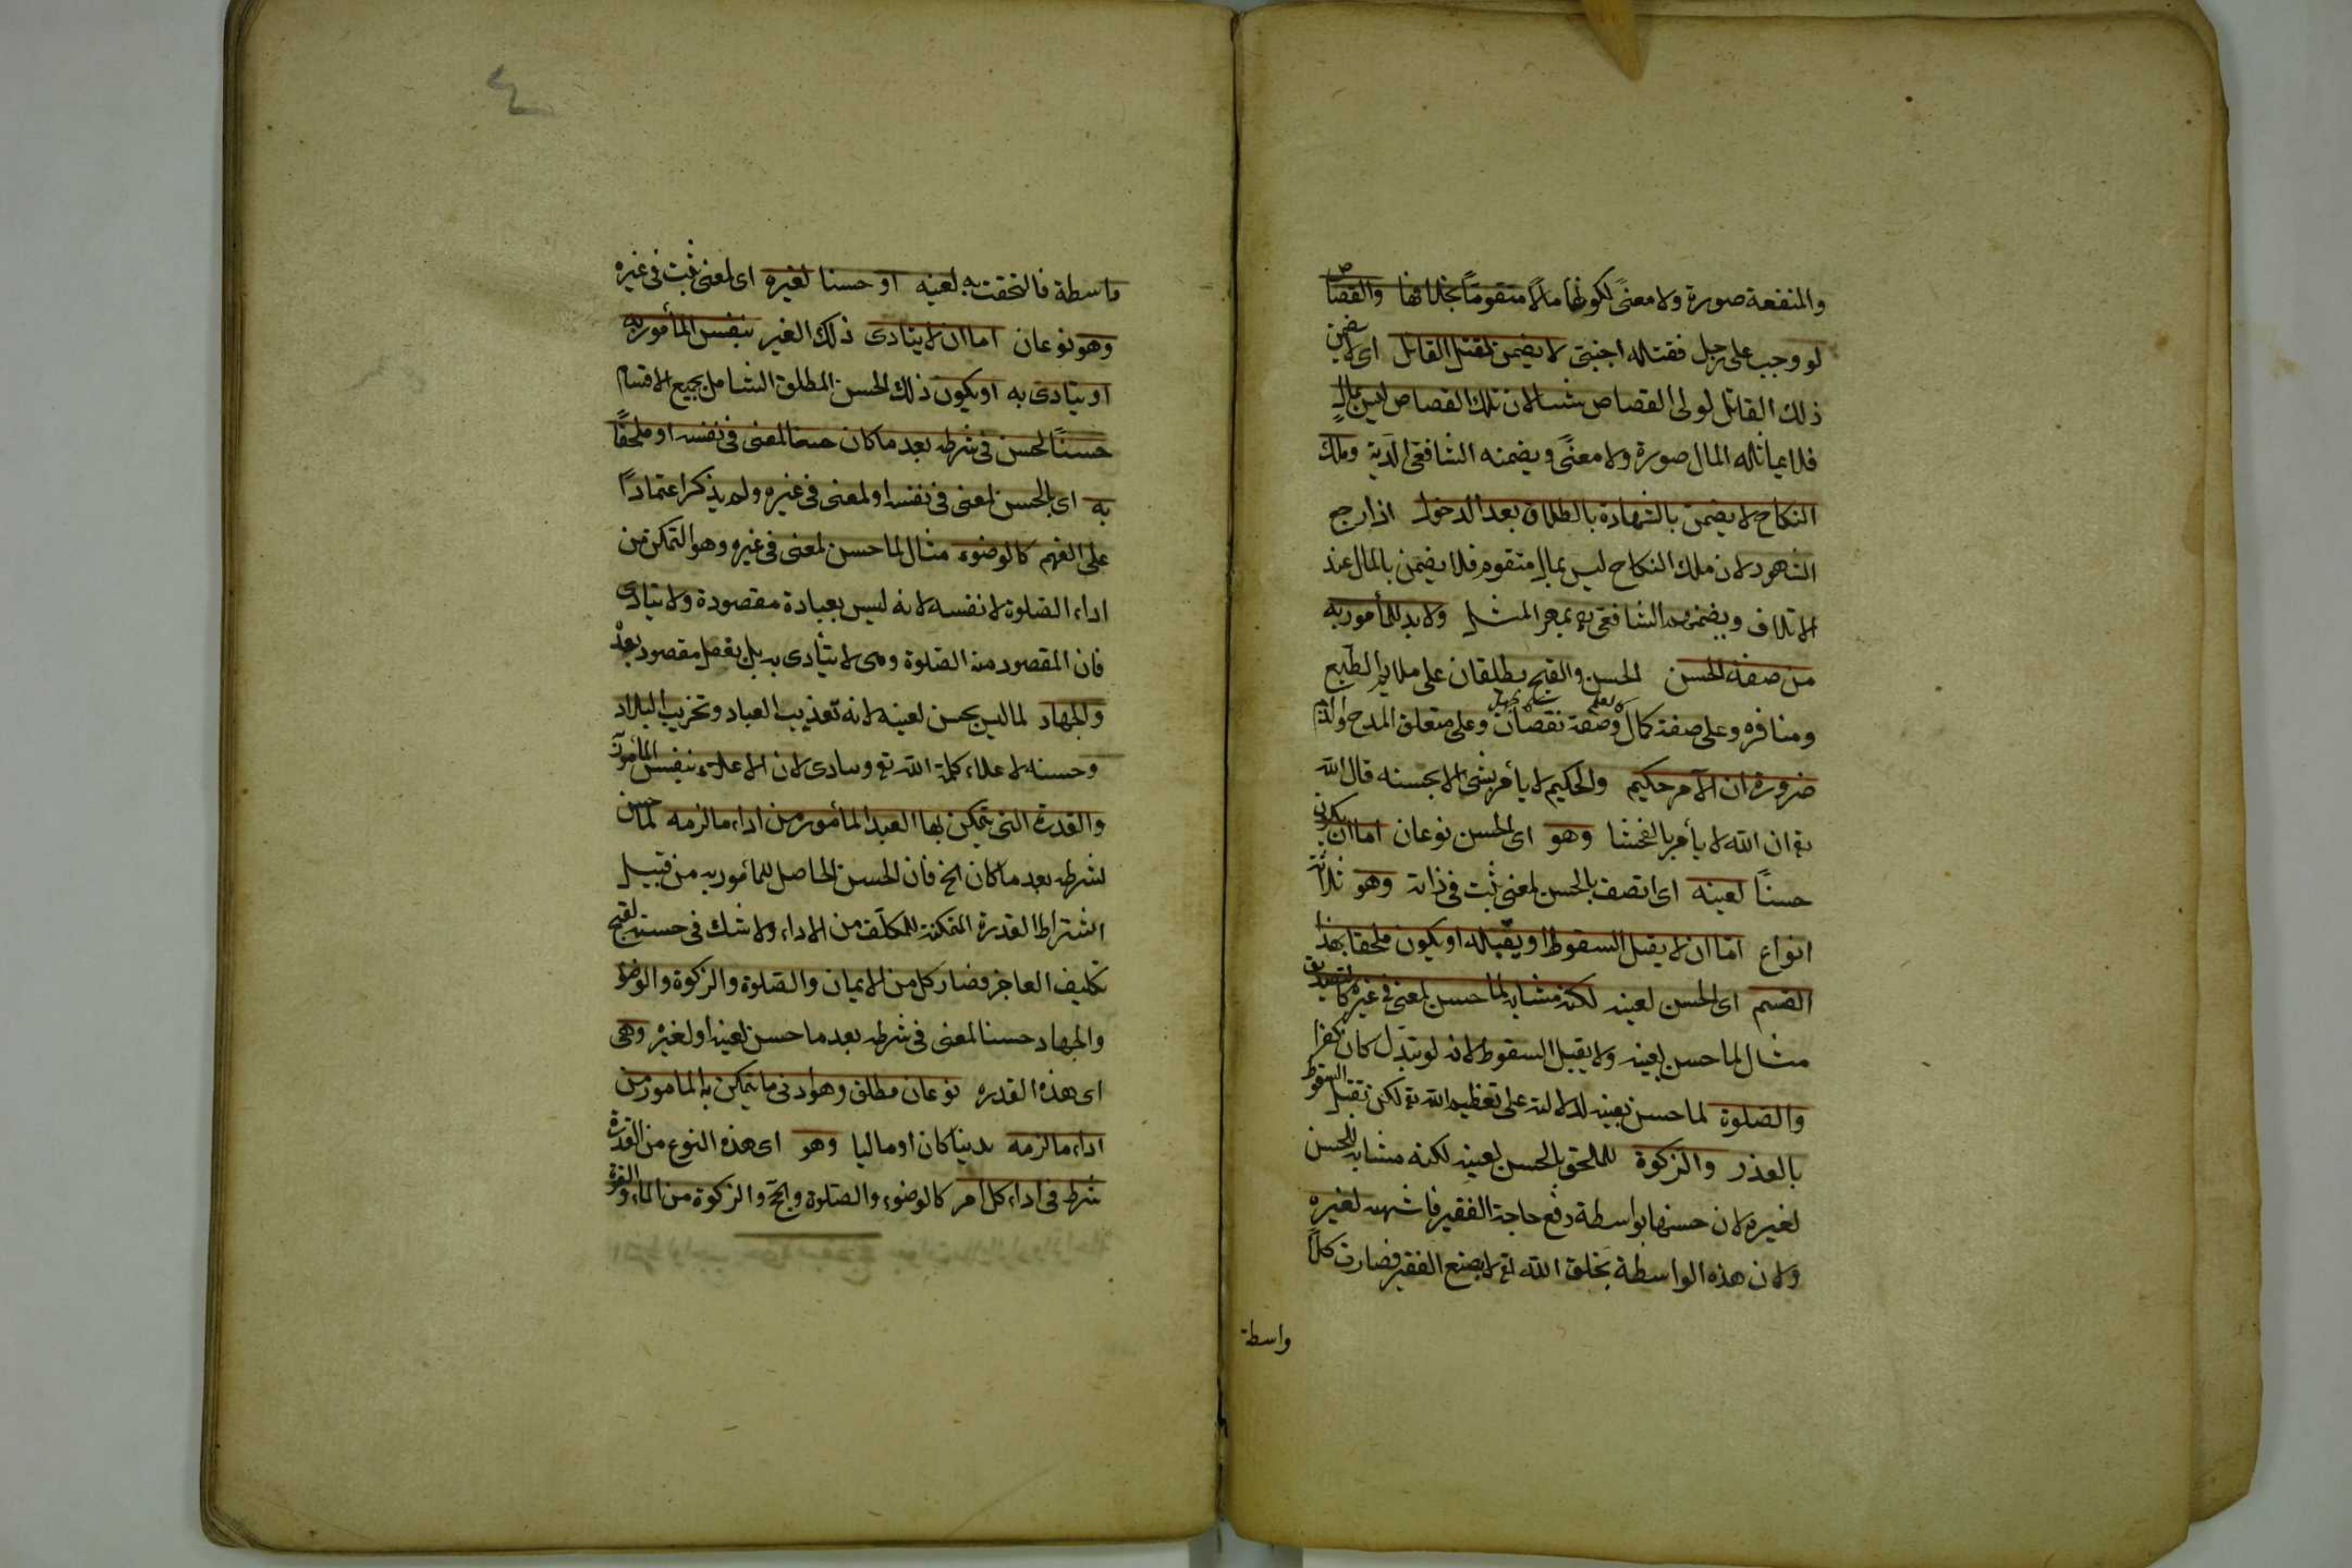 والمنفعة صورة ولا معنىً لكونها مالاً متقوماً بخلافها والقصاص
لو وجب على رجل فقتله اجنبى لا يضمن لقتل القاتل اى لا يضمن
ذلك القاتل لولى القصاص شيئا لان تلك القصاص ليس بمالٍ
فلا يماثله المال صورة ولا معنىً ويضمنه الشافعى الدية وملك
النكاح لا يضمن بالشهادة بالطلاق بعد الدخول اذا رجع
الشهود لان ملك النكاح ليس بمال متقوم فلا يضمن بالمال عند
الاتلاف ويضمنه الشافعى به بمهر المثل ولا بد للمأمور به
من صفة الحسن الحسن والقبح يطلقان على ملايم الطبع
ومنافره وعلى صفة كمال وصفة نقصان وعلى متعلق المدح والذم
ضرورة ان الآمر حكيم والحكيم لا يأمر بشى الا بحسنه قال الله
تع ان الله لا يأمر بالفحشا وهو اى الحسن نوعان اما ان يكون
حسناً لعينه اى اتصف بالحسن لمعنى ثبت فى ذاته وهو ثلاثة
انواع امّا ان لا يقبل السقوط او يقبله او يكون ملحقا بهذا
القسم اى الحسن لعينه لكنه مشابه لما حسن لمعنى فى غيره كالتصديق
مثال لما حسن لعينه ولا يقبل السقوط لانه لو تبدّل كان كفرا
والصلوة لما حسن بعينه لدلالته على تعظيم الله تع لكن تقبل السقوط
بالعذر والزكوة للملحق بالحسن لعينه لكنه مشابه للحسن
لغيره لان حسنها بواسطة دفع حاجة الفقير فاشبهه لغيره
ولان هذه الواسطة بخلق الله تع لا بصنع الفقير فصارت كلا
واسطة
٤
واسطة فالتحقت به لعينه او حسنا لغيره اى لمعنى ثبت فى غيره
وهو نوعان اما ان لا يتادى ذلك الغير بنفس المأمور به
او يتادى به او يكون ذلك الحسن المطلق الشامل بجميع الاقسام
حسناً لحسن فى شرطه بعد ما كان حسنا لمعنى فى نفسه او ملحقاً
به اى بالحسن لمعنى فى نفسه او لمعنى فى غيره ولم يذكر اعتماداً
على الفهم كالوضوء مثال لما حسن لمعنى فى غيره وهو التمكن من
اداء الصلوة لا نفسه لانه ليس بعبادة مقصودة ولا يتادى
فان المقصود منه الصلوة وهى لا يتأدى به بل بفعل مقصود بعده
والجهاد لما ليس بحسن لعينه لانه تعذيب العباد وتخريب البلاد
وحسنه لاعلاء كلمة الله تع ويتادى لان الاعلاء بنفس المأمور به
والقدرة التى يتمكن بها العبد المأمور من اداء ما لزمه لما حسن
لشرطه بعد ما كان الخ فان الحسن الحاصل للمأمور به من قبيل
اشتراط القدرة الممكنة للمكلف من الاداء ولا شك فى حسنه لقبح
تكليف العاجز فصار كل من الايمان والصلوة والزكوة والوضوء
والجهاد حسنا لمعنى فى شرطه بعد ما حسن لعينه او لغيره وهى
اى هذه القدرة نوعان مطلق وهو ادنى ما يتمكن به المامور من
اداء ما لزمه بدنيا كان او ماليا وهو اى هذه النوع من القدرة
شرط فى اداء كل امر كالوضوء والصلوة والحج والزكوة من الماء والقوة